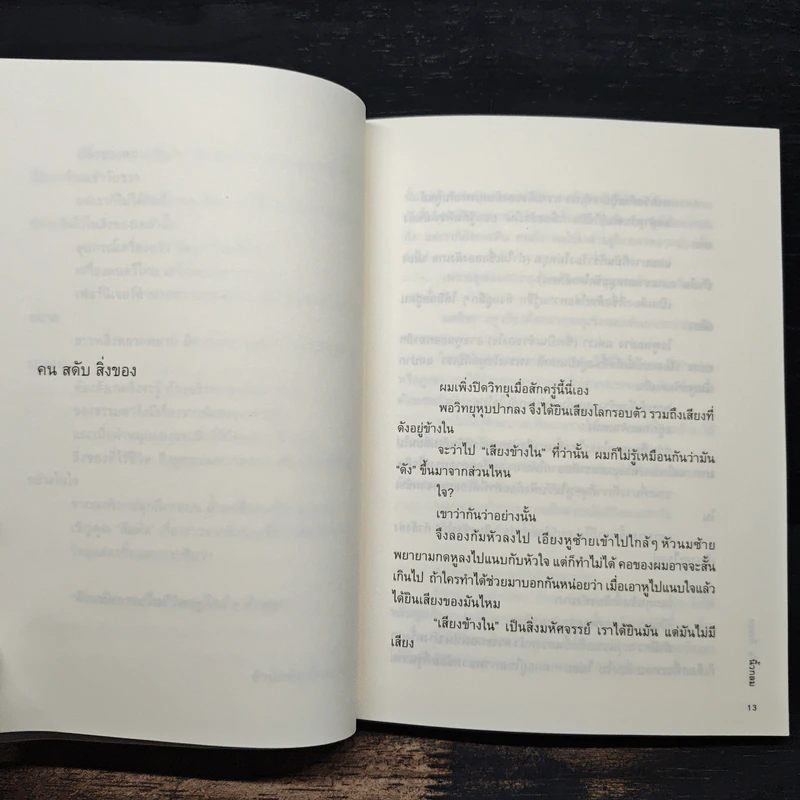 คน สดับ สิ่งของ
ผมเพิ่งปิดวิทยุเมื่อสักครู่นี้นี่เอง
พอวิทยุหุบปากลง จึงได้ยินเสียงโลกรอบตัว รวมถึงเสียงที่
ดังอยู่ข้างใน
จะว่าไป “เสียงข้างใน” ที่ว่านั้น ผมก็ไม่รู้เหมือนกันว่ามัน
“ดัง” ขึ้นมาจากส่วนไหน
ใจ?
เขาว่ากันว่าอย่างนั้น
จึงลองก้มหัวลงไป เอียงหูซ้ายเข้าไปใกล้ๆ หัวนมซ้าย
พยายามกดหูลงไปแนบกับหัวใจ แต่ก็ทำไม่ได้ คอของผมอาจจะสั้น
เกินไป ถ้าใครทำได้ช่วยมาบอกกันหน่อยว่า เมื่อเอาหูไปแนบใจแล้ว
ได้ยินเสียงของมันไหม
“เสียงข้างใน” เป็นสิ่งมหัศจรรย์ เราได้ยินมัน แต่มันไม่มี
เสียง
นิ้วกลม
13